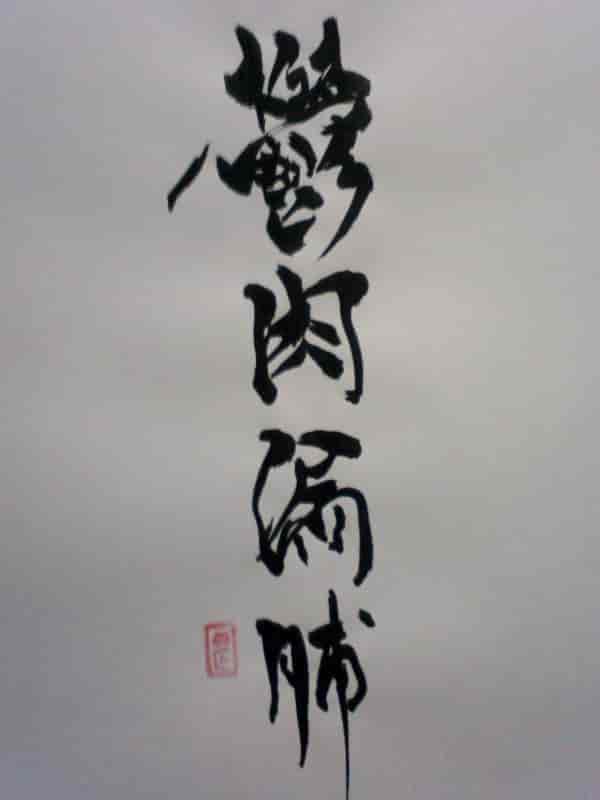 鬱肉漏脯